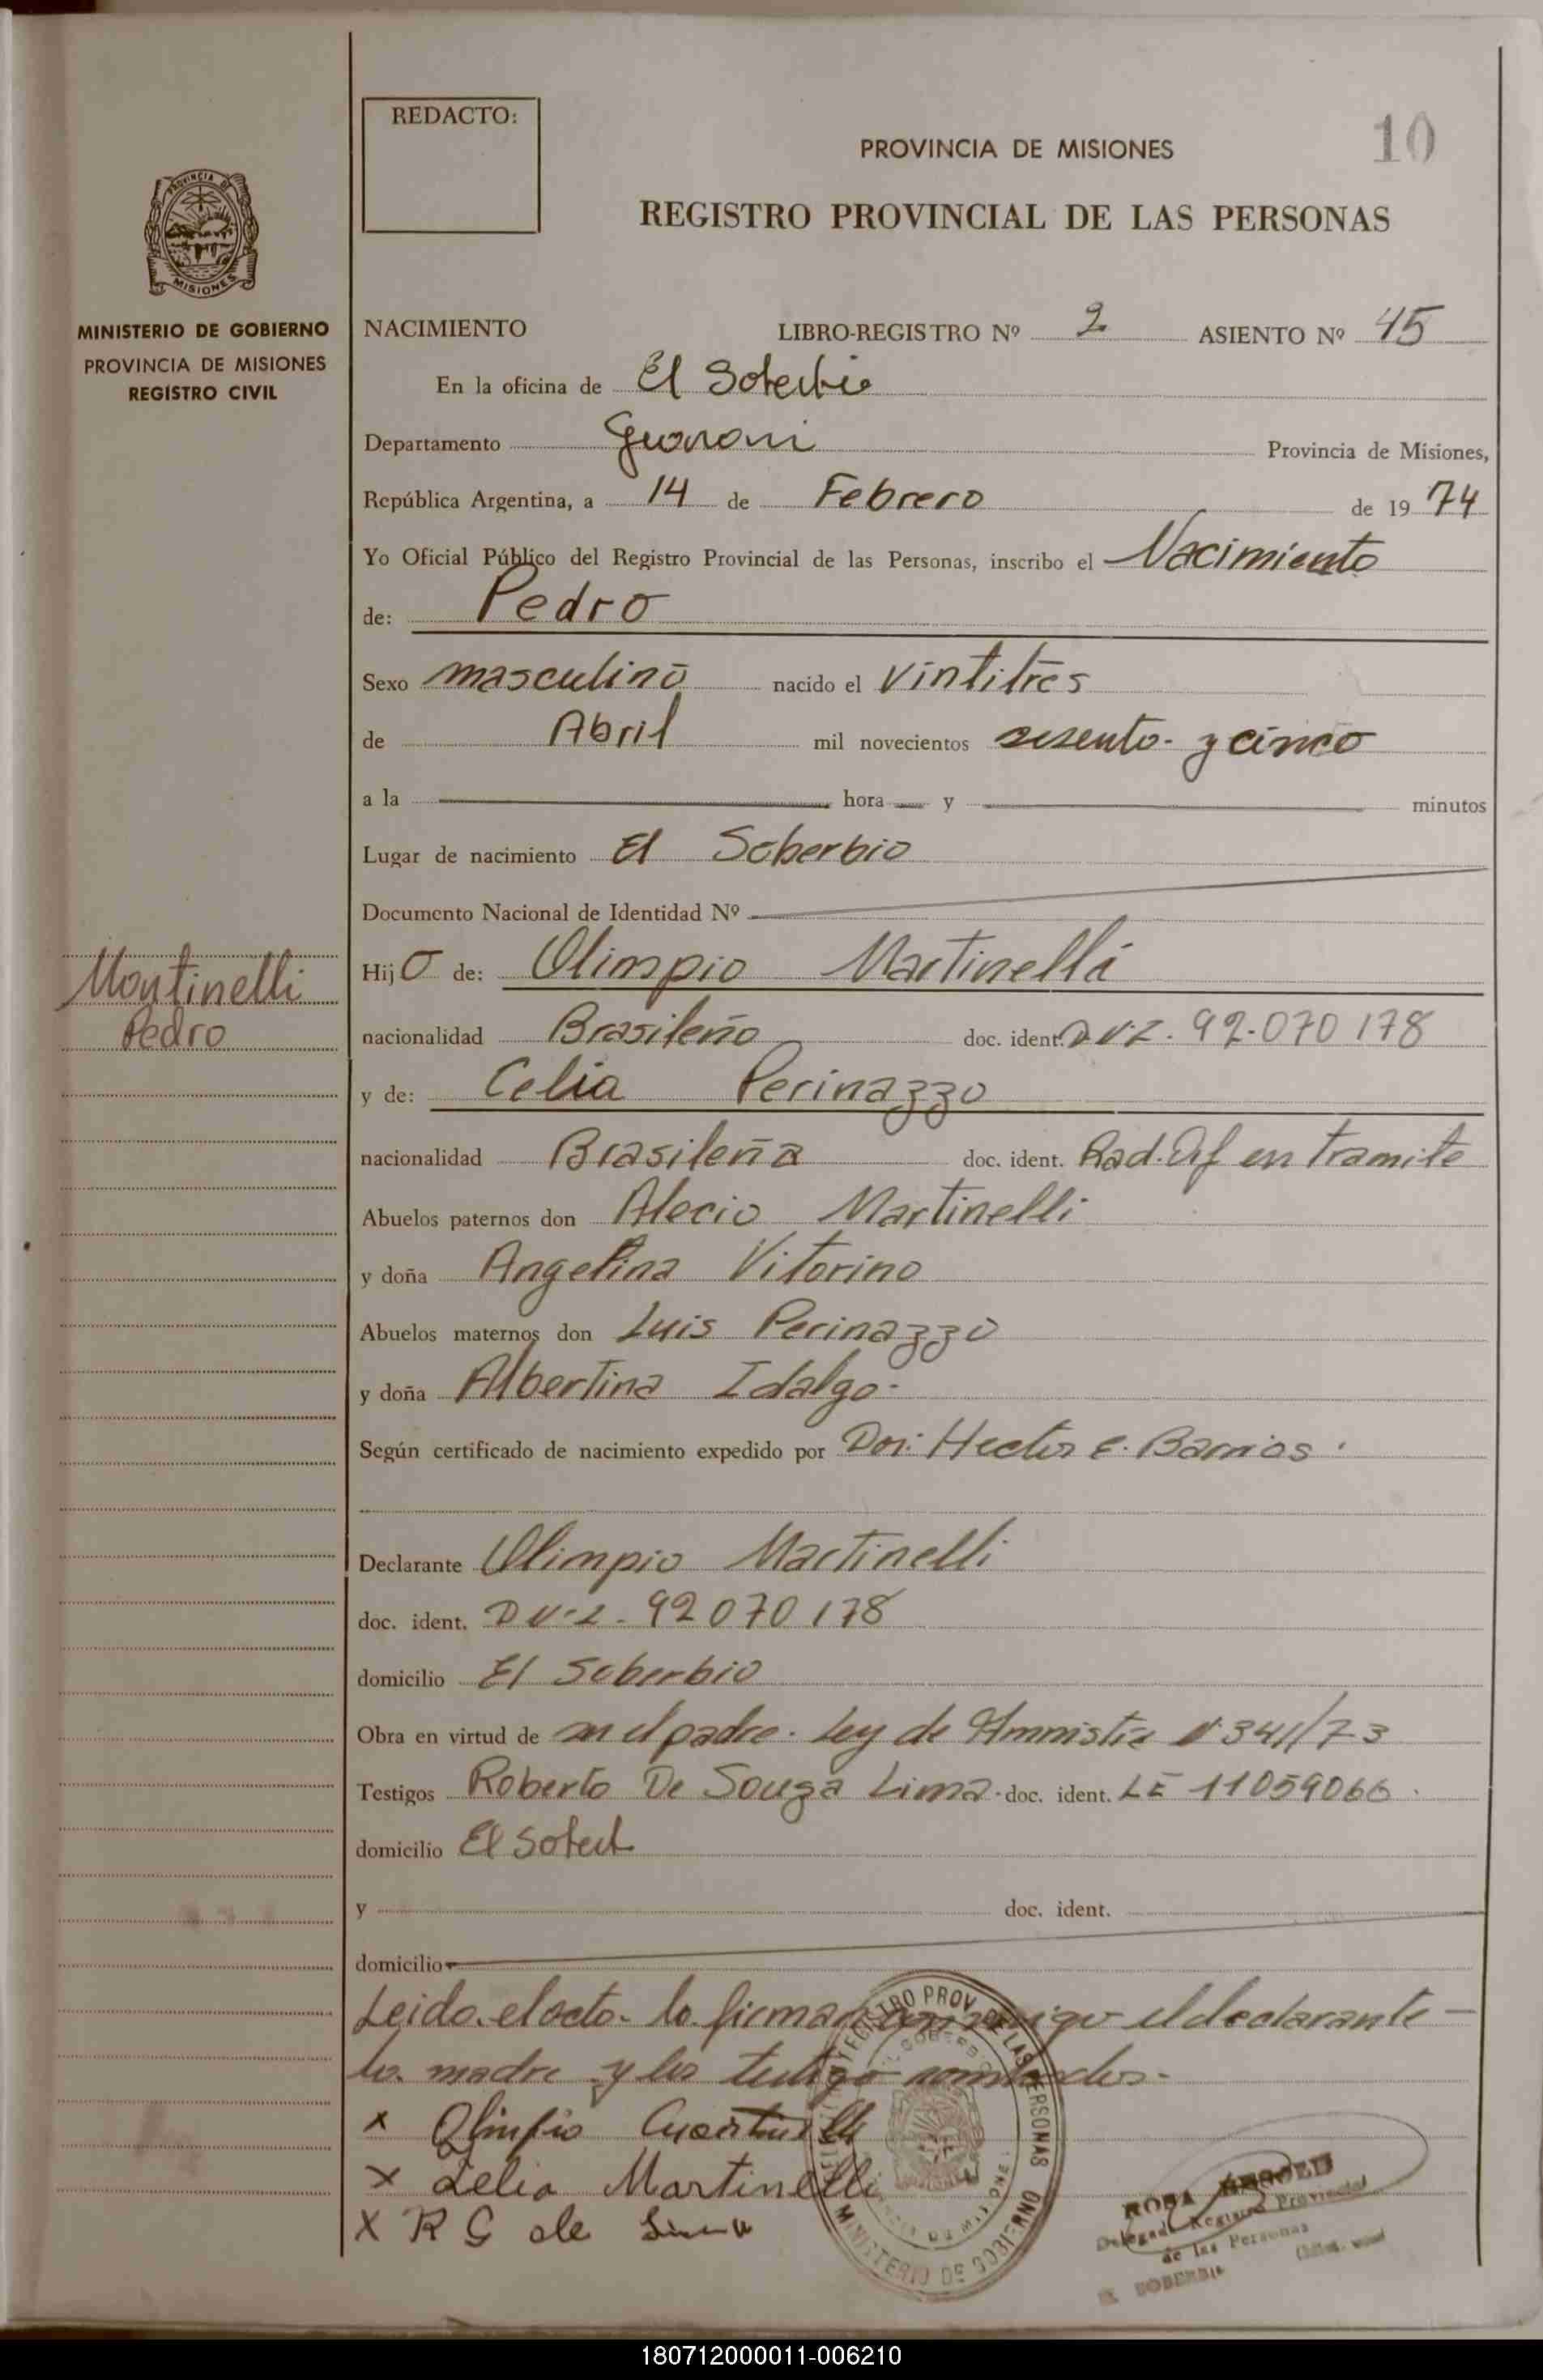 REDACTO:
PROVINCIA DE MISIONES
10
REGISTRO PROVINCIAL DE LAS PERSONAS
PROVINCIA DE
MISIONES
MINISTERIO DE GOBIERNO
PROVINCIA DE MISIONES
REGISTRO CIVIL
NACIMIENTO LIBRO-REGISTRO Nº 2 ASIENTO Nº 45
En la oficina de El Soberbio
Departamento Guarani Provincia de Misiones,
República Argentina, a 14 de Febrero de 1974
Yo Oficial Público del Registro Provincial de las Personas, inscribo el Nacimiento
de: Pedro
Sexo masculino nacido el vintitres
de Abril mil novecientos sesenta y cinco
a la hora y minutos
Lugar de nacimiento El Soberbio
Documento Nacional de Identidad Nº
Martinelli
Pedro
Hijo de: Olimpio Martinelli
nacionalidad Brasileño doc. ident. 92.070 178
y de: Celia Perinazzo
nacionalidad Brasileña doc. ident. Rad. en tramite
Abuelos paternos don Alecio Martinelli
y doña Angelina Vitorino
Abuelos maternos don Luis Perinazzo
y doña Albertina Idalgo-
Según certificado de nacimiento expedido por Hector E. Barrios.
Declarante Olimpio Martinelli
doc. ident. 92070178
domicilio El Soberbio
Obra en virtud de ser el padre. Ley de Amnistia Nº 341/73
Testigos Roberto De Souza Lima. doc. ident. LE 11059066.
domicilio El Soberb
y doc. ident.
domicilio
Leido el acto lo firman conmigo el declarante -
la madre y los testigo nombrados.-
x Olimpio Martinelli
x Zelia Martinelli
X R G de Lima
REGISTRO PROV. DE LAS PERSONAS
MINISTERIO DE GOBIERNO
ROSA
Delegada Registro Provincial
de las Personas
EL SOBERBIO
180712000011-006210